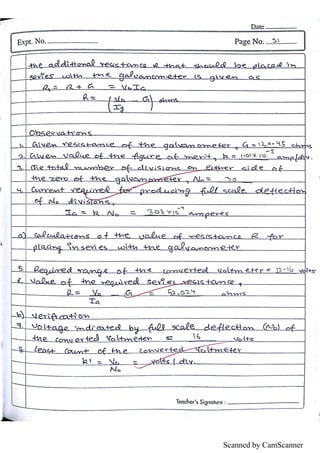 Date
Expt. No.
Page No. 51
the additional resistance R that should be placed in
series with the galvanometer is given as
R1 = R + G = V0 IG
R = ( V0 / Ig - G ) ohms
Observations
1. Given resistance of the galvanometer, G = 120.45 ohms
2. Given value of the figure of merit, k = 1.01 x 10^-5 amp/div.
3. The total number of divisions on either side of
the zero of the galvanometer, N0 = 30
4. Current required for producing full scale deflection
of N0 divisions,
IG = k N0 = 30.3 x 10^-5 amperes
a) calculations of the value of resistance R for
placing in series with the galvanometer
5. Required range of the converted voltmeter = 12-16 volts
6. value of the required series resistance,
R = V0 / IG - G = 52,024 ohms
b) verification
7. voltage indicated by full scale deflection (N0) of
the converted voltmeter = 16 volts
8. least count of the converted voltmeter
k1 = V0 / N0 = volts / div.
Teacher's Signature :
Scanned by CamScanner